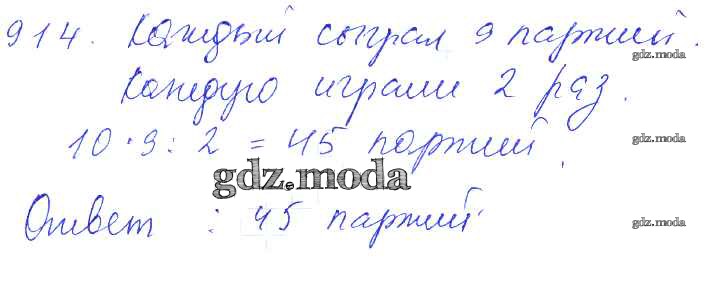 914. Каждый сыграл 9 партий.
gdz.moda
Каждую играли 2 раз.
10 · 9 : 2 = 45 партий.
gdz.moda
gdz.moda
Ответ : 45 партий
gdz.moda